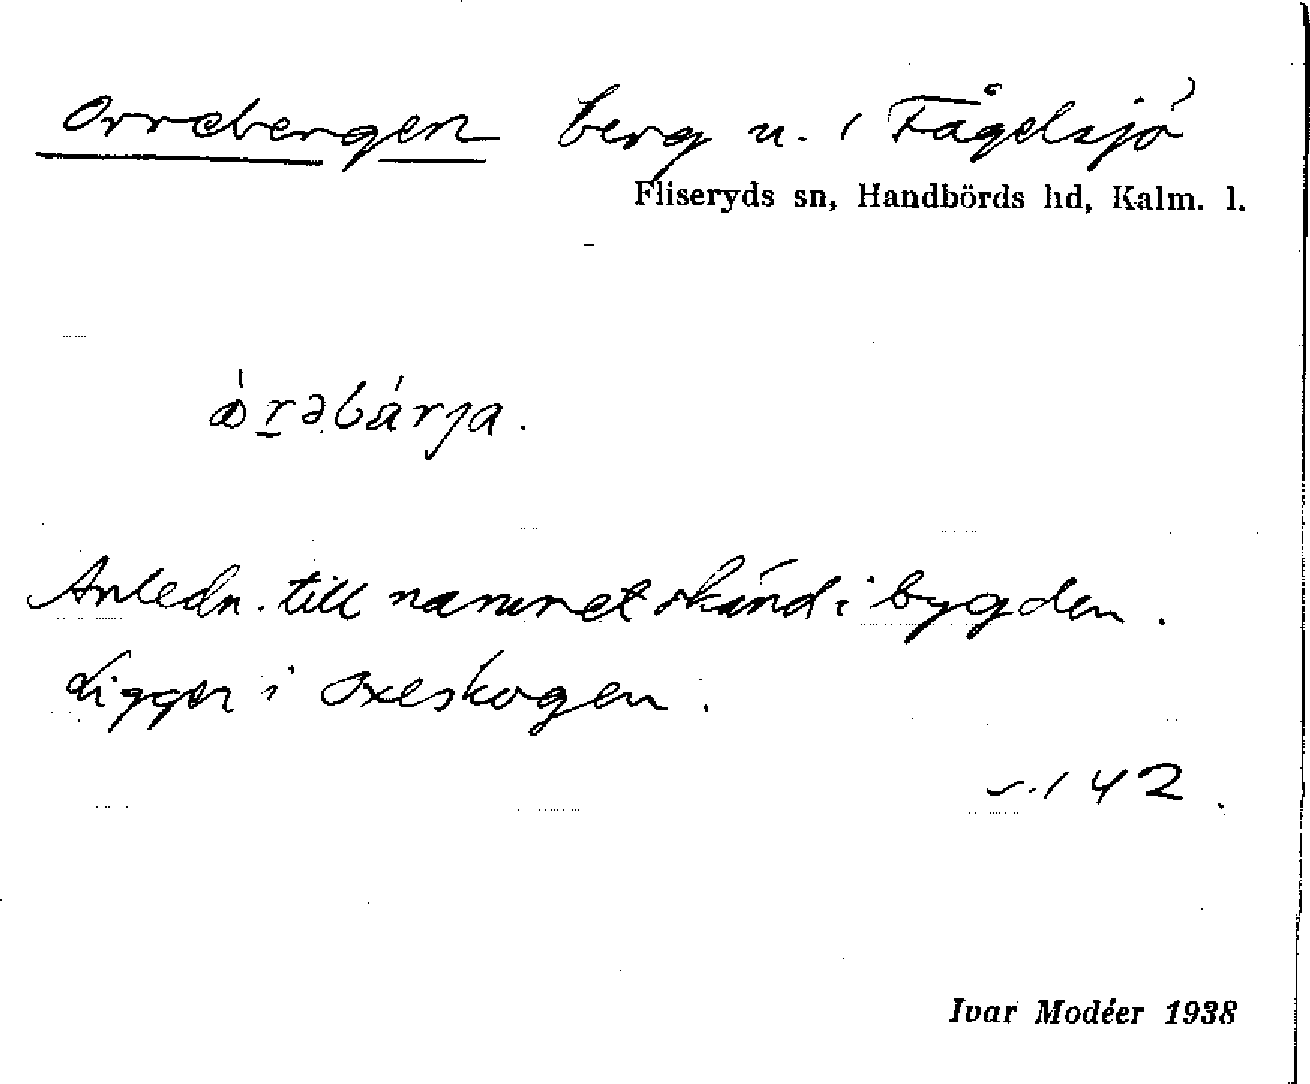 Orrebergen berg n. i Fågelsjö
Fliseryds sn, Handbörds hd, Kalm. l.
Anledn. till namnet okänd i bygden.
Ligger i Oxeskogen.
142.
Ivar Modéer 1938